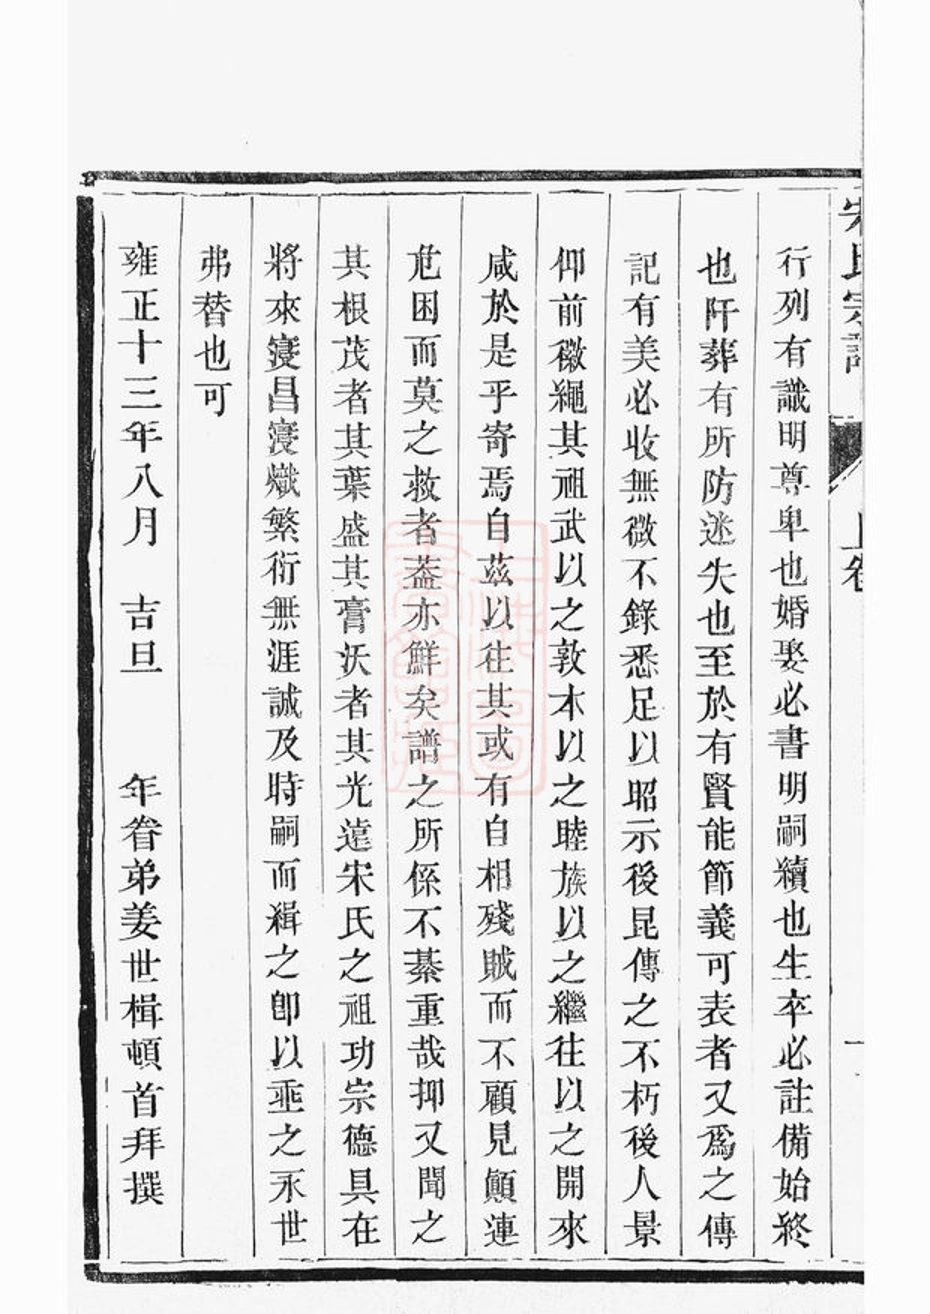 宋氏宗譜
上卷
一
行列有識明尊卑也婚娶必書明嗣續也生卒必註備始終
也阡葬有所防迷失也至於有賢能節義可表者又爲之傳
記有美必收無微不錄悉足以昭示後昆傳之不朽後人景
仰前徽繩其祖武以之敦本以之睦族以之繼往以之開來
咸於是乎寄焉自茲以往其或有自相殘賊而不顧見顚連
危困而莫之救者葢亦鮮矣譜之所係不綦重哉抑又聞之
其根茂者其葉盛其膏沃者其光遠宋氏之祖功宗德具在
將來寖昌寖熾繁衍無涯誠及時嗣而緝之卽以垂之永世
弗替也可
雍正十三年八月　吉旦　　年眷弟姜世楫頓首拜撰